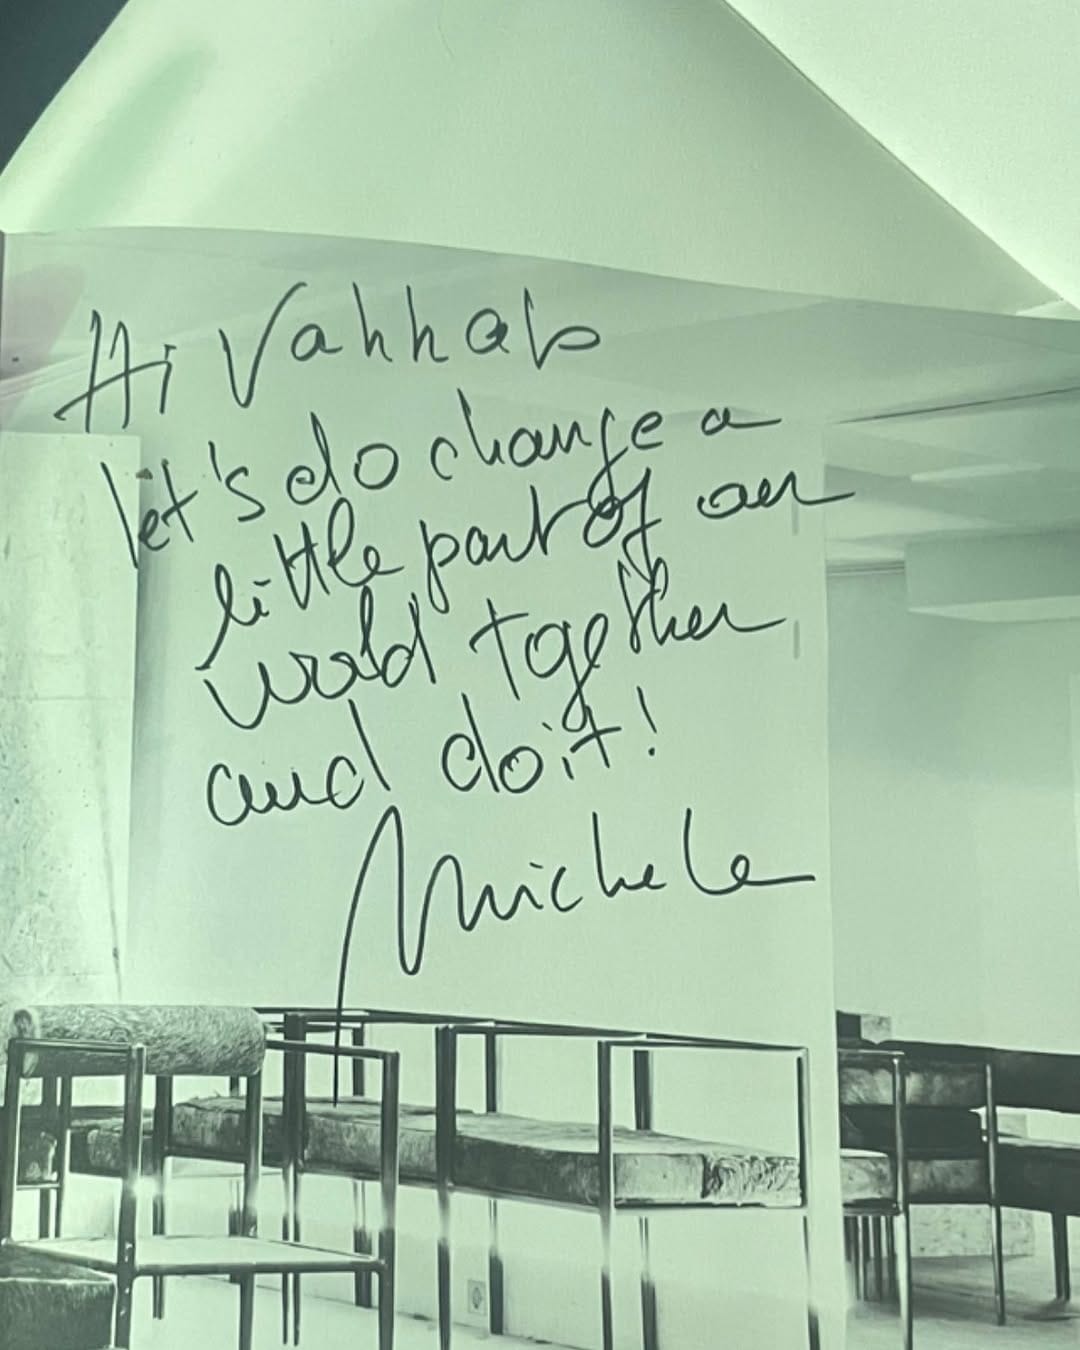 Hi Vahhab
let's do change a
little part of our
world together
and do it!
Michele